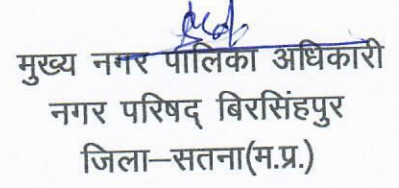 मुख्य नगर पालिका अधिकारी
नगर परिषद् बिरसिंहपुर
जिला–सतना(म.प्र.)